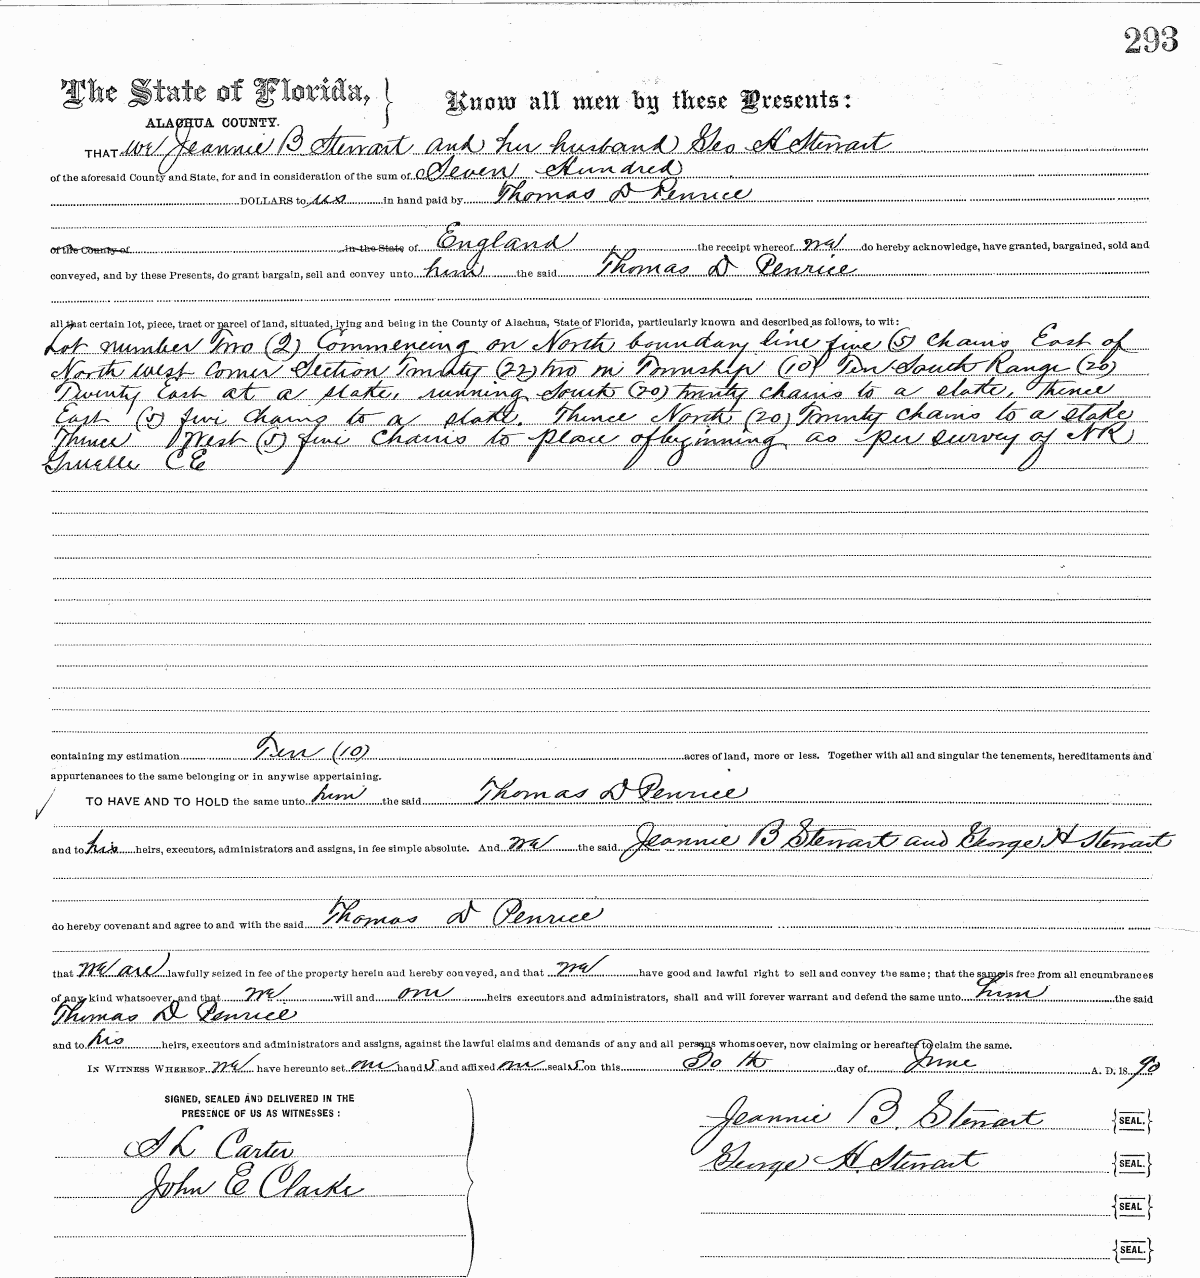 293
The State of Florida,
ALACHUA COUNTY.
Know all men by these Presents:
THAT we Jeannie B Stewart and her husband Geo H Stewart
of the aforesaid County and State, for and in consideration of the sum of Seven Hundred
DOLLARS to us in hand paid by Thomas D Penrice
of the County of in the State of England the receipt whereof we do hereby acknowledge, have granted, bargained, sold and
conveyed, and by these Presents, do grant bargain, sell and convey unto him the said Thomas D Penrice
all that certain lot, piece, tract or parcel of land, situated, lying and being in the County of Alachua, State of Florida, particularly known and described as follows, to wit:
Lot number Two (2) Commencing on North boundary line five (5) chains East of
North west Corner Section Twenty (22) two in Township (10) Ten South Range (20)
Twenty East at a stake, running South (20) twenty chains to a stake, Thence
East (5) five chains to a stake. Thence North (20) Twenty chains to a stake
Thence West (5) five chains to place of beginning as per survey of NR
Gruelle CE
containing my estimation Ten (10) acres of land, more or less. Together with all and singular the tenements, hereditaments and
appurtenances to the same belonging or in anywise appertaining.
TO HAVE AND TO HOLD the same unto him the said Thomas D Penrice
and to his heirs, executors, administrators and assigns, in fee simple absolute. And we the said Jeannie B Stewart and George H Stewart
do hereby covenant and agree to and with the said Thomas D Penrice
that we are lawfully seized in fee of the property herein and hereby conveyed, and that we have good and lawful right to sell and convey the same; that the same is free from all encumbrances
of any kind whatsoever, and that we will and our heirs executors and administrators, shall and will forever warrant and defend the same unto him the said
Thomas D Penrice
and to his heirs, executors and administrators and assigns, against the lawful claims and demands of any and all persons whomsoever, now claiming or hereafter to claim the same.
IN WITNESS WHEREOF we have hereunto set our hands and affixed our seals on this 30 th day of June A. D. 18 90
SIGNED, SEALED AND DELIVERED IN THE
PRESENCE OF US AS WITNESSES:
S L Carter
John E Clarke
Jeannie B. Stewart {SEAL.}
George H Stewart {SEAL.}
{SEAL}
{SEAL.}